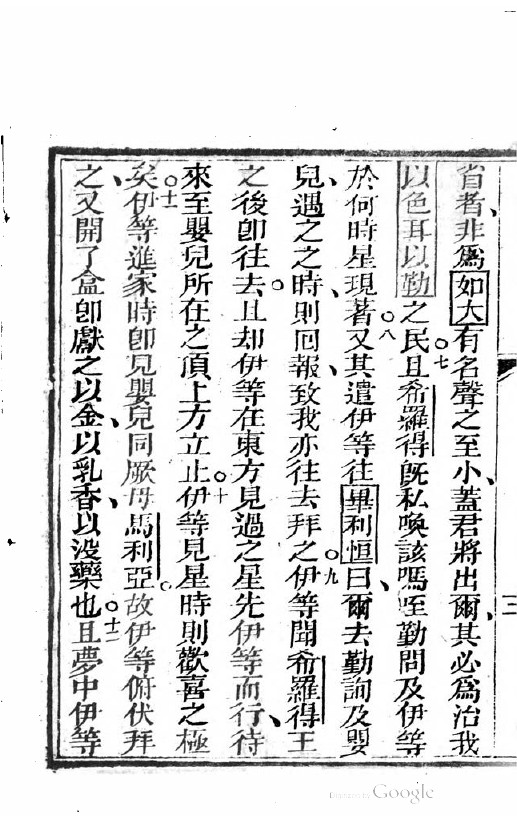 省者、非爲如大有名聲之至小、蓋君將出爾、其必爲治我
以色耳以勒之民○七且希羅得旣私喚該嗎咥勤問及伊等
於何時星現著○八又其遣伊等往畢利恒曰、爾去勤詢及嬰
兒、遇之之時、則回報、致我亦往去拜之○九伊等聞希羅得王、
之後卽往去○且却伊等在東方見過之星先伊等而行、待
來至嬰兒所在之頂上方立止○十伊等見星時則歡喜之極
矣○十一伊等進家時卽見嬰兒同厥母馬利亞○故伊等俯伏拜
之、又開了盒卽獻之以金、以乳香、以没藥也○十二且夢中伊等
三
Digitized by Google